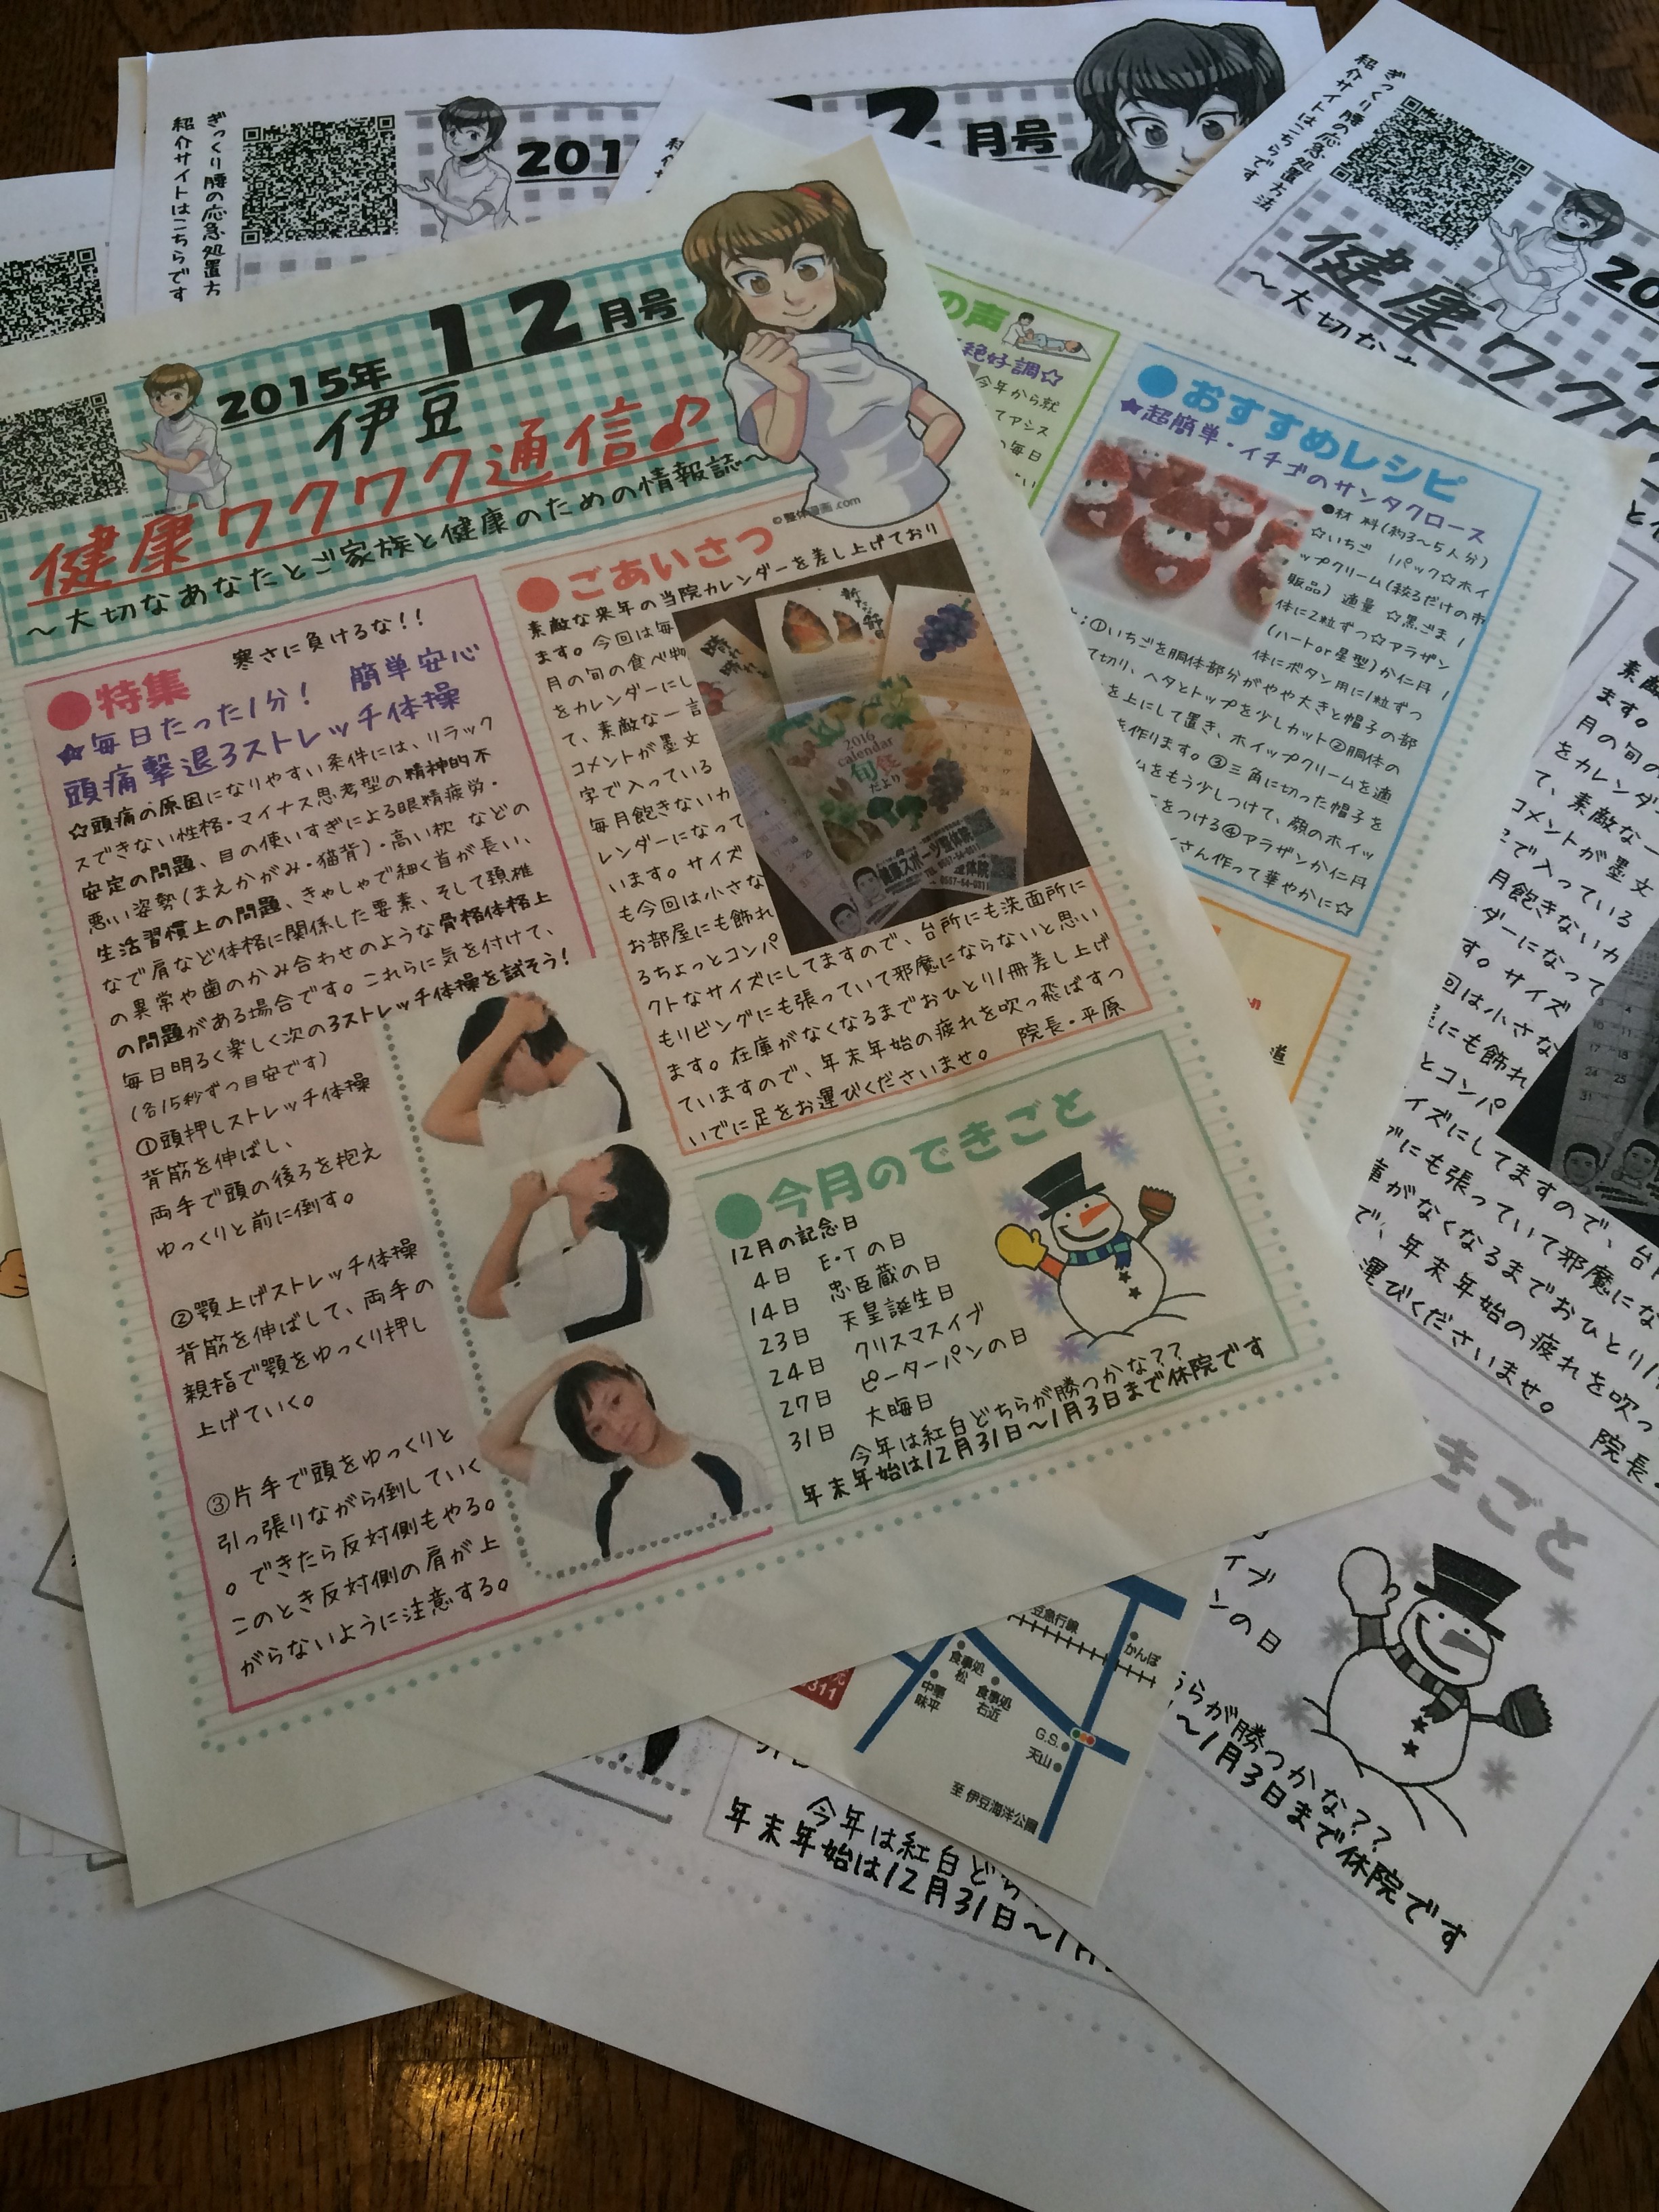 2015年
12月号
伊豆
健康ワクワク通信♪
～大切なあなたとご家族と健康のための情報誌～
©整体漫画.com
●特集
寒さに負けるな！！
☆毎日たった1分！　簡単安心
頭痛撃退3ストレッチ体操
☆頭痛の原因になりやすい条件には、リラック
スできない性格・マイナス思考型の精神的不
安定の問題、目の使いすぎによる眼精疲労・
悪い姿勢(まえかがみ・猫背)・高い枕 などの
生活習慣上の問題、きゃしゃで細く首が長い、
なで肩など体格に関係した要素、そして頚椎
の異常や歯のかみ合わせのような骨格体格上
の問題がある場合です。これらに気を付けて、
毎日明るく楽しく次の3ストレッチ体操を試そう！
(各15秒ずつ目安です)
①頭押しストレッチ体操
背筋を伸ばし、
両手で頭の後ろを抱え
ゆっくりと前に倒す。
②顎上げストレッチ体操
背筋を伸ばして、両手の
親指で顎をゆっくり押し
上げていく。
③片手で頭をゆっくりと
引っ張りながら倒していく
。できたら反対側もやる。
このとき反対側の肩が上
がらないように注意する。
●ごあいさつ
素敵な来年の当院カレンダーを差し上げており
ます。今回は毎
月の旬の食べ物
をカレンダーにし
て、素敵な一言
コメントが墨文
字で入っている
毎月飽きないカ
レンダーになって
います。サイズ
も今回は小さな
お部屋にも飾れ
るちょっとコンパ
クトなサイズにしてますので、台所にも洗面所に
もリビングにも張っていて邪魔にならないと思い
ます。在庫がなくなるまでおひとり1冊差し上げ
ていますので、年末年始の疲れを吹っ飛ばすつ
いでに足をお運びくださいませ。　院長・平原
2016
calendar
旬食
だより
●今月のできごと
12月の記念日
4日　E・Tの日
14日　忠臣蔵の日
23日　天皇誕生日
24日　クリスマスイブ
27日　ピーターパンの日
31日　大晦日
今年は紅白どちらが勝つかな？？
年末年始は12月31日～1月3日まで休院です
の声
絶好調☆
今年から就
てアシス
の毎日
●おすすめレシピ
★超簡単・イチゴのサンタクロース
●材 料(約3～5人分)
☆いちご　1パック☆ホイ
ップクリーム(絞るだけの市
販品) 適量 ☆黒ごま 1
体に2粒ずつ☆アラザン
(ハートor星型)か仁丹 1
体にボタン用に1粒ずつ
：①いちごを胴体部分がやや大きと帽子の部
て切り、ヘタとトップを少しカット②胴体の
を上にして置き、ホイップクリームを適
を作ります。③三角に切った帽子を
ムをもう少しつけて、顔のホイッ
をつける④アラザンか仁丹
さん作って華やかに☆
豆急行線
かんぽ
食事処
松
中華
味平
食事処
右近
G.S.
天山
至 伊豆海洋公園
311
ぎっくり腰の応急処置方
紹介サイトはこちらです
201
12月号
ぎっくり腰の応急処置方法
紹介サイトはこちらです
20
健康ワクワ
～大切な
ます。
月の旬の
をカレンダ
て、素敵な一
コメントが墨文
で入っている
月飽きないカ
ダーになって
す。サイズ
回は小さな
にも飾れ
とコンパ
イズにしてますので、台
にも張っていて邪魔にな
庫がなくなるまでおひとり1
で、年末年始の疲れを吹っ
運びくださいませ。　院長
きごと
イブ
ンの日
ちらが勝つかな？？
～1月3日まで休院です
今年は紅白ど
年末年始は12月31日～1月